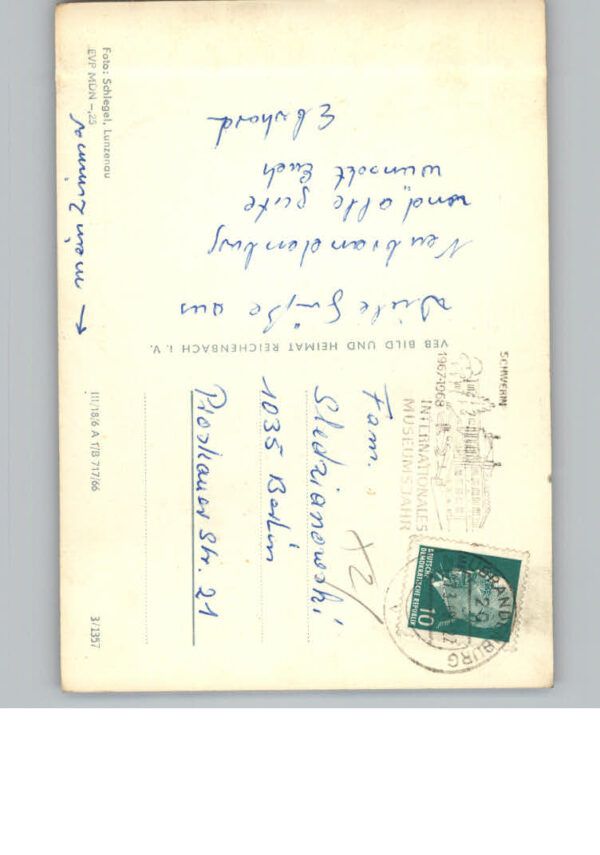 Viele Grüße aus
Neubrandenburg
und alle gute
wünscht Euch
Eberhard
mein Zimmer
Foto: Schlegel, Lunzenau
EVP MDN -,25
VEB BILD UND HEIMAT REICHENBACH i. V.
III/18/6 A 7/B 717/66
3/1357
SCHWERIN
1967-1968
INTERNATIONALES
MUSEUMSJAHR
DEUTSCHE
DEMOKRATISCHE REPUBLIK
10
Fam.
Sledzianowski
1035 Berlin
Proskauer Str. 21